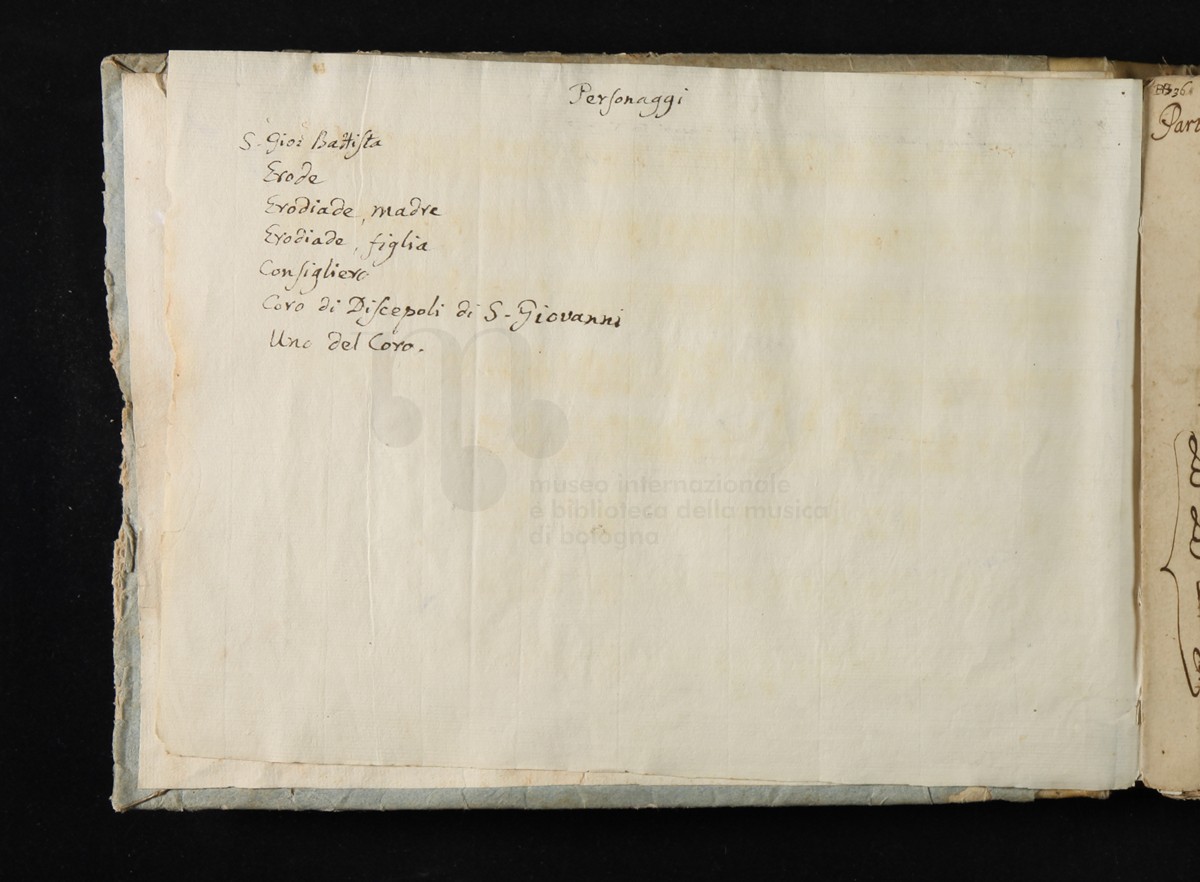 Personaggi
S. Gio: Battista
Erode
Erodiade, madre
Erodiade, figlia
Consigliero
Coro di Discepoli di S. Giovanni
Uno del Coro.
museo internazionale
e biblioteca della musica
di bologna